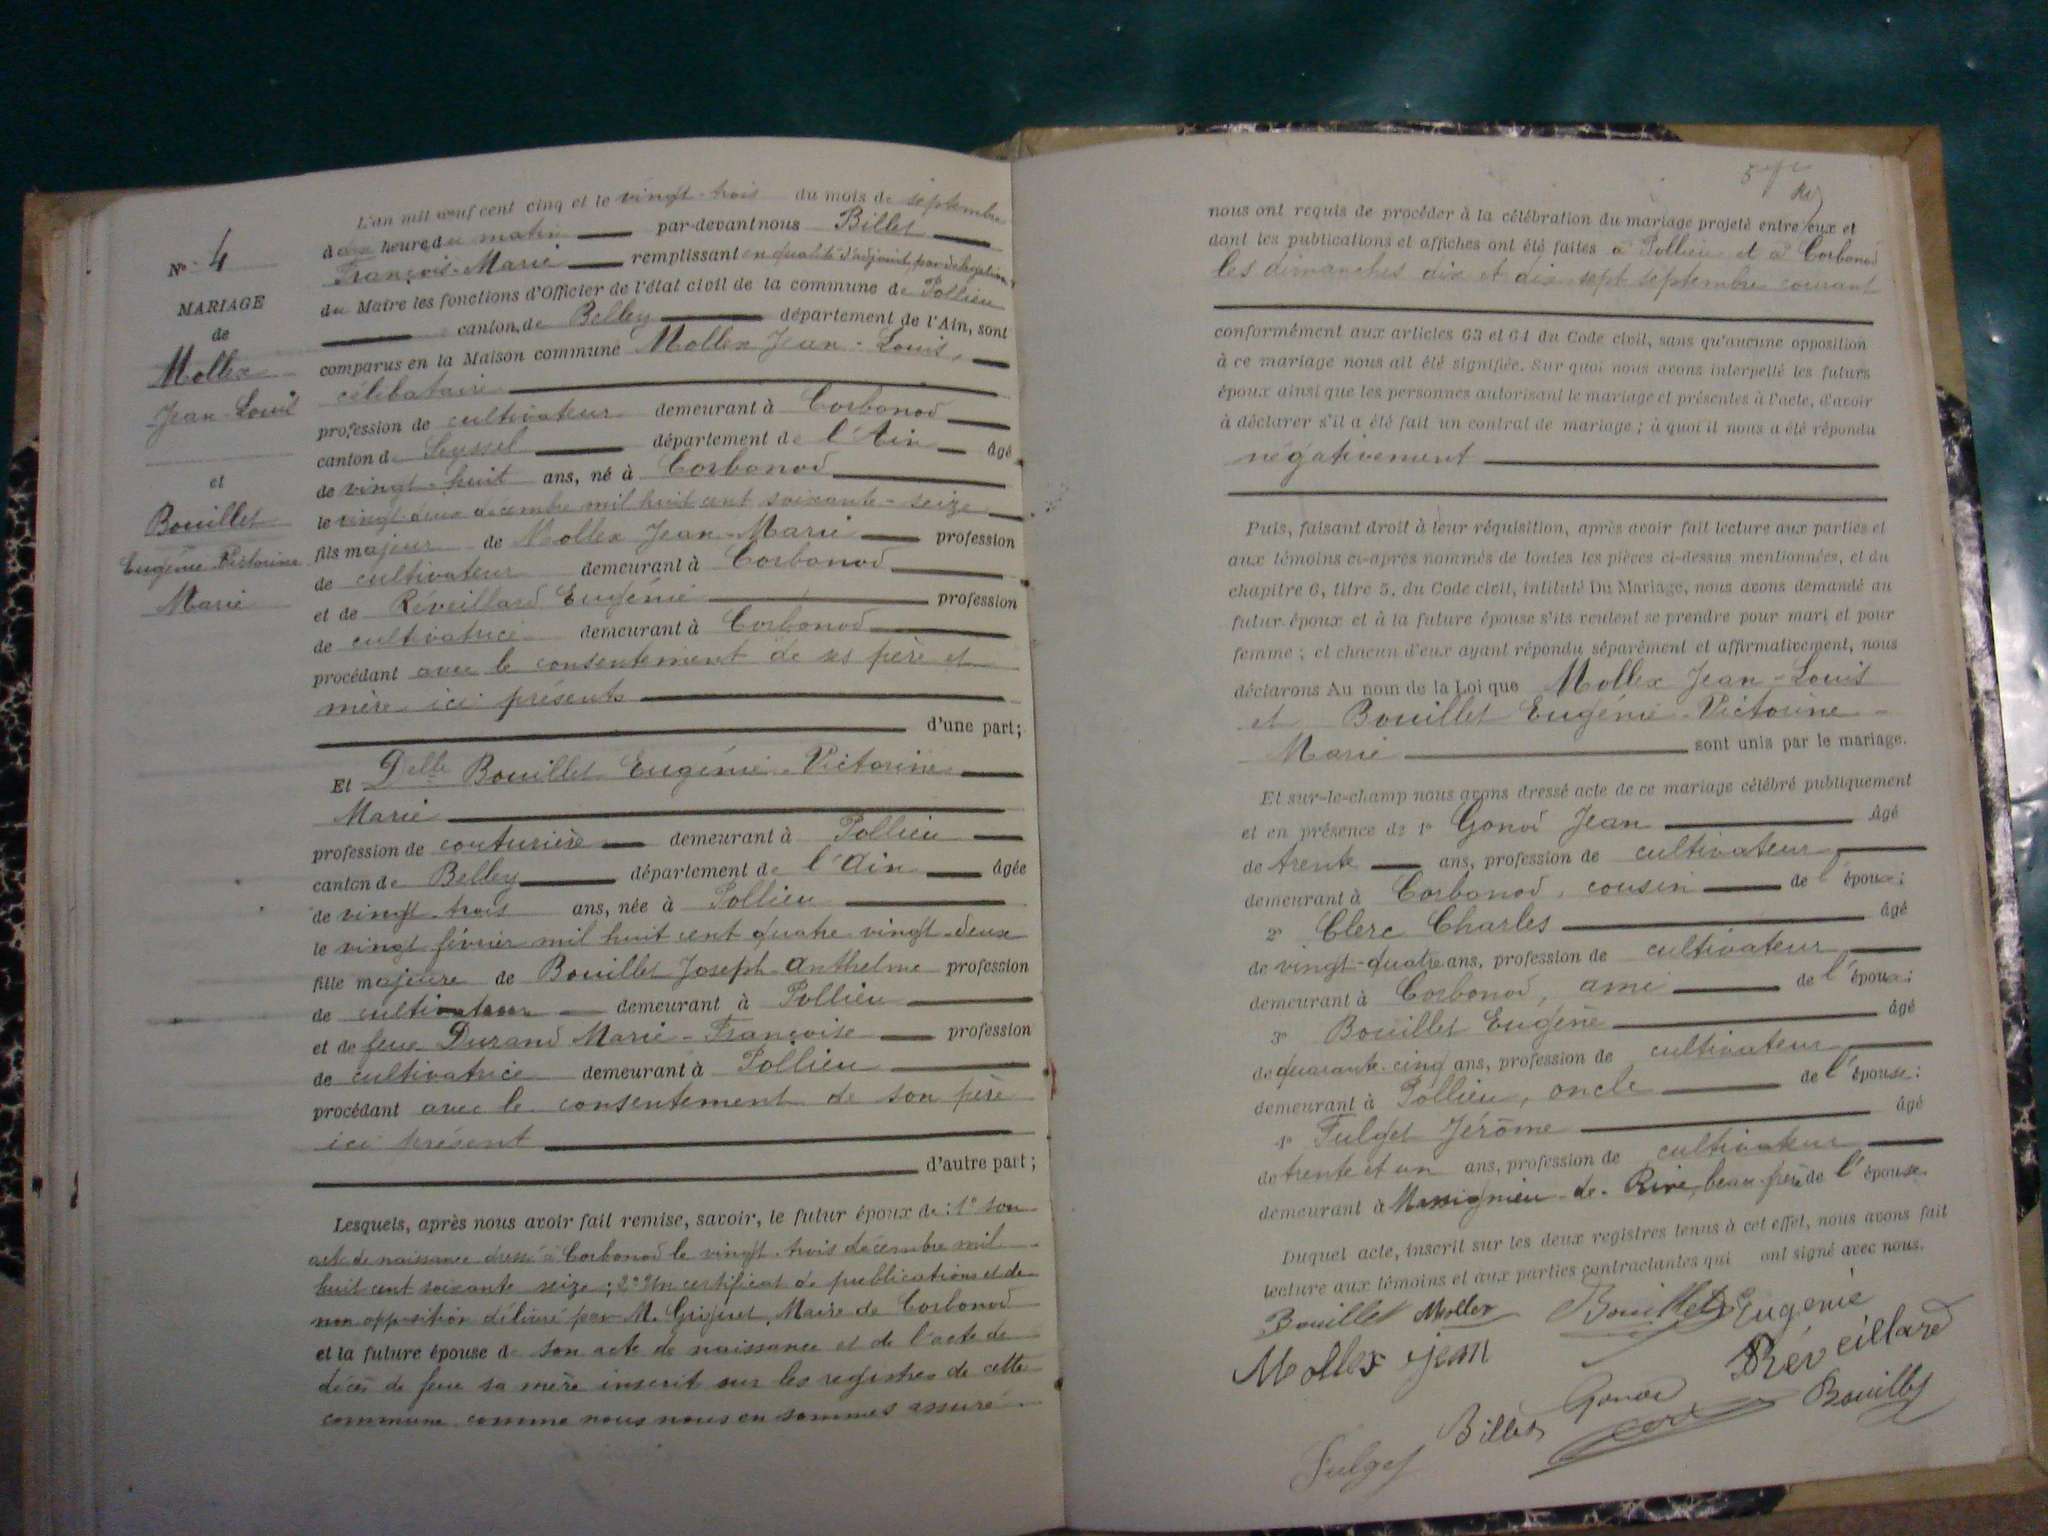 N° 4
MARIAGE
de
Mollex
Jean-Louis
et
Bouillet
Eugénie-Victorine
Marie
L'an mil neuf cent cinq et le vingt-trois du mois de septembre
à dix heures du matin par-devant nous Billet
François-Marie remplissant en qualité d'adjoint, par délégation
du Maire les fonctions d'Officier de l'état civil de la commune de Pollieu
canton de Belley département de l'Ain, sont
comparus en la Maison commune Mollex Jean-Louis,
célibataire
profession de cultivateur demeurant à Corbonod
canton de Seyssel département de l'Ain âgé
de vingt-huit ans, né à Corbonod
le vingt-deux décembre mil huit cent soixante-seize
fils majeur de Mollex Jean-Marie profession
de cultivateur demeurant à Corbonod
et de Réveillard Eugénie profession
de cultivatrice demeurant à Corbonod
procédant avec le consentement de ses père et
mère ici présents
d'une part;
Et Delle Bouillet Eugénie-Victorine
Marie
profession de couturière demeurant à Pollieu
canton de Belley département de l'Ain âgée
de vingt-trois ans, née à Pollieu
le vingt février mil huit cent quatre vingt-deux
fille majeure de Bouillet Joseph-Anthelme profession
de cultivateur demeurant à Pollieu
et de feue Durand Marie-Françoise profession
de cultivatrice demeurant à Pollieu
procédant avec le consentement de son père
ici présent
d'autre part;
Lesquels, après nous avoir fait remise, savoir, le futur époux de: 1° son
acte de naissance dressé à Corbonod le vingt-trois décembre mil
huit cent soixante seize; 2° Un certificat de publications et de
non opposition délivré par M. Maire de Corbonod
et la future épouse de son acte de naissance et de l'acte de
décès de feue sa mère inscrit sur les registres de cette
commune comme nous nous en sommes assuré
nous ont requis de procéder à la célébration du mariage projeté entre eux et
dont les publications et affiches ont été faites à Pollieu et à Corbonod
les dimanches dix et dix-sept septembre courant
conformément aux articles 63 et 64 du Code civil, sans qu'aucune opposition
à ce mariage nous ait été signifiée. Sur quoi nous avons interpellé les futurs
époux ainsi que les personnes autorisant le mariage et présentes à l'acte, d'avoir
à déclarer s'il a été fait un contrat de mariage; à quoi il nous a été répondu
négativement
Puis, faisant droit à leur réquisition, après avoir fait lecture aux parties et
aux témoins ci-après nommés de toutes les pièces ci-dessus mentionnées, et du
chapitre 6, titre 5, du Code civil, intitulé Du Mariage, nous avons demandé au
futur époux et à la future épouse s'ils veulent se prendre pour mari et pour
femme; et chacun d'eux ayant répondu séparément et affirmativement, nous
déclarons Au nom de la Loi que Mollex Jean-Louis
et Bouillet Eugénie-Victorine-
Marie sont unis par le mariage.
Et sur-le-champ nous avons dressé acte de ce mariage célébré publiquement
et en présence de 1° Gonod Jean âgé
de trente ans, profession de cultivateur
demeurant à Corbonod, cousin de l'époux;
2° Clerc Charles âgé
de vingt-quatre ans, profession de cultivateur
demeurant à Corbonod, ami de l'époux;
3° Bouillet Eugène âgé
de quarante-cinq ans, profession de cultivateur
demeurant à Pollieu, oncle de l'épouse;
4° Fulget Jérôme âgé
de trente et un ans, profession de cultivateur
demeurant à Massignieu-de-Rive, beau-père de l'épouse
Duquel acte, inscrit sur les deux registres tenus à cet effet, nous avons fait
lecture aux témoins et aux parties contractantes qui ont signé avec nous.
Bouillet Mollex Bouillet Eugénie
Mollex Jean Réveillard
Gonod Bouillet
Billet
Fulget